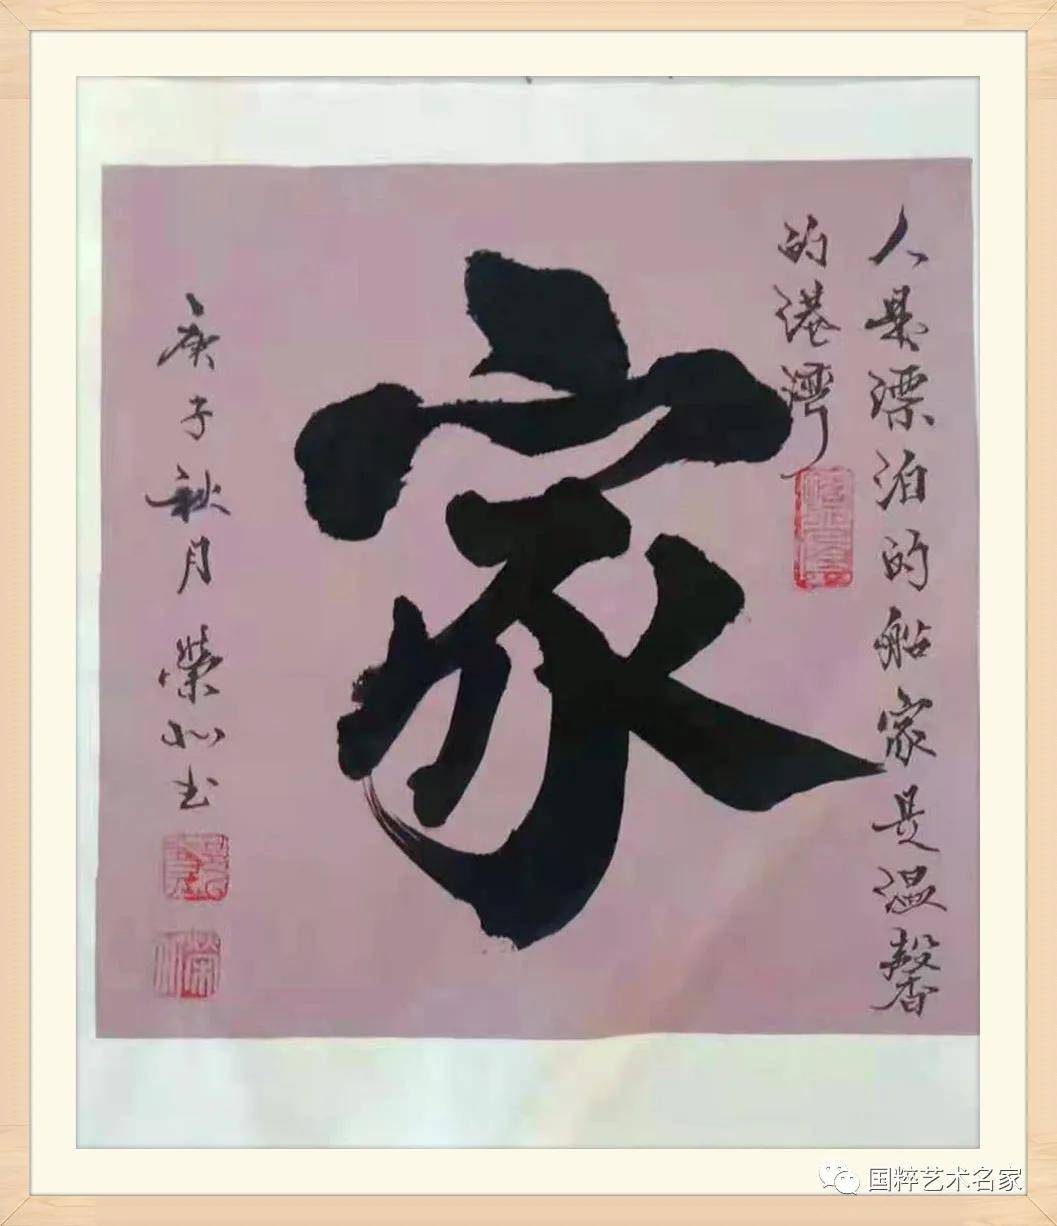 人是漂泊的船家是温馨
的港湾
家
庚子秋月荣以书
国粹艺术名家